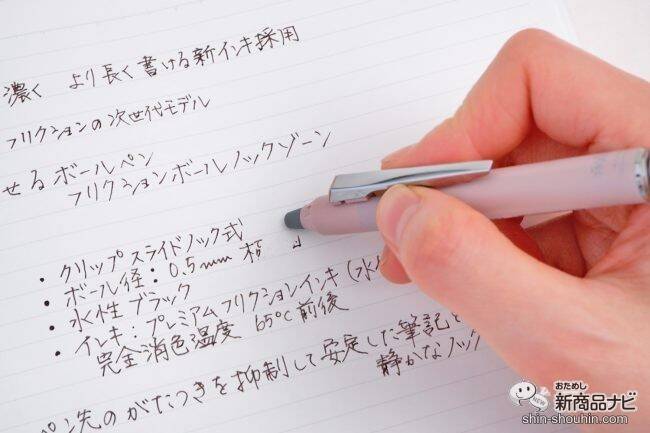 濃く より長く書ける新インキ採用
フリクションの次世代モデル
せるボールペン
フリクションボールノックゾーン
・クリップスライドノック式
・ボール径：0.5mm
・水性ブラック
・インキ：プレミアムフリクションインキ（水
完全消色温度 65℃前後
ペン先のがたつきを抑制して安定した筆記と
静かなノック
おためし
新商品ナビ
shin-shouhin.com